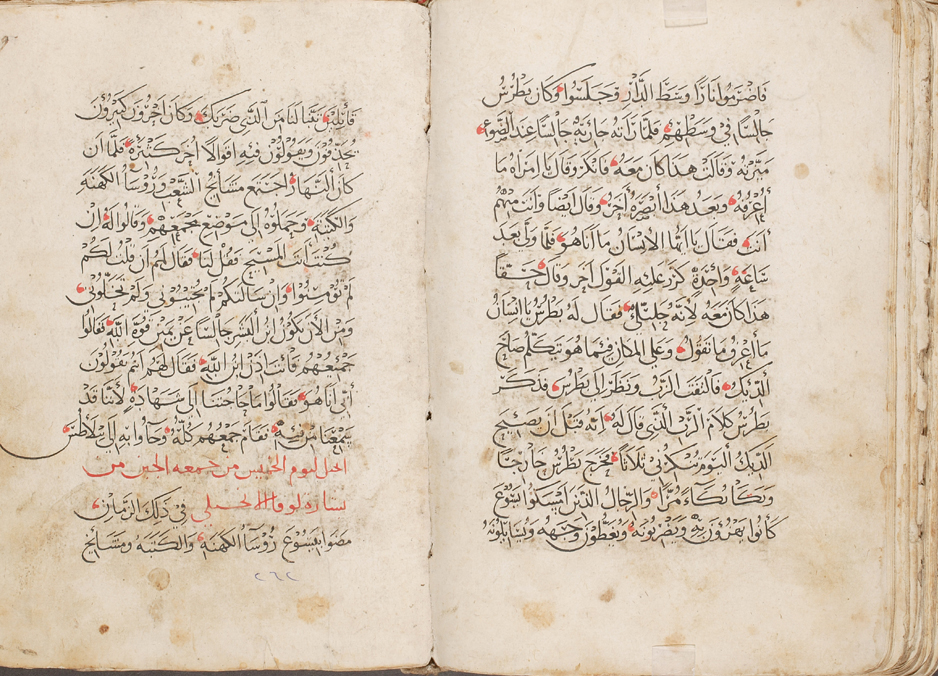 فاضرموا نارًا وسط الدار وجلسوا وكان بطرس
جالسًا في وسطهم فلما راته جاريه جالسًا عند الضوء
ميزته وقالت هذا كان معه فانكر وقال يا امراه ما
اعرفه وبعد هذا ابصره اخر وقال ايضًا وانت منهم
انت فقال يا ايها الانسان ما انا هو فلما ولى بعد
ساعةٍ واحدة كرر عليه القول اخر وقال حقًا
هذا كان معه لانه جليلي فقال له بطرس يا انسان
ما اعرف ما تقول وعلى المكان فيما هو يتكلم صاح
الديك فالتفت الرب ونظر الى بطرس فذكر
بطرس كلام الرب الذي قال له انه قبل ان يصيح
الديك اليوم تنكرني ثلاثًا فخرج بطرس خارجًا
وبكا بكاءً مرًا والرجال الذين امسكوا يسوع
كانوا يهزؤن به ويضربونه ويغطون وجهه ويسايلونه
قايلين تنبا لنا من الذي ضربك وكان اخرون كثيرون
يجدفون ويقولون فيه اقوالًا اخر كثيرة فلما ان
كان النهار اجتمع مشايخ الشعب وروسا الكهنه
والكتبة وحملوه الى موضع مجمعهم وقالوا له ان
كنت انت المسيح فقل لنا فقال لهم ان قلت لكم
لم تومنوا وان سالتكم لم تجيبوني ولم تخلوني
ومن الان يكون ابن البشر جالسًا عن يمين قوة الله فقالوا
جميعهم فانت اذن ابن الله فقال لهم انتم تقولون
اني انا هو فقالوا ما حاجتنا الى شهادةٍ لاننا قد
سمعنا من فيه فقام جمعهم كله وجاوا به الى بيلاطس
انجيل ليوم الخميس من جمعه الجبن من
بشاره لوقا الانجيلي في ذلك الزمان
مضوا بيسوع روسا الكهنه والكتبه ومشايخ
٢٦٢